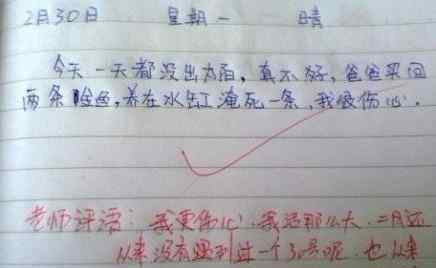 2月30日 星期一 晴
今天一天都没出太阳，真不好，爸爸买回
两条鱼，养在水缸淹死一条，我很伤心。
老师评语：我更伤心，我活那么大，二月还
从来没有遇到过一个30号呢，也从来